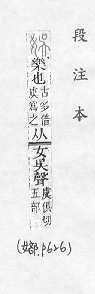 段注本
娛樂也古多借虞爲之从女吳聲虞俱切五部
(女部,P626)